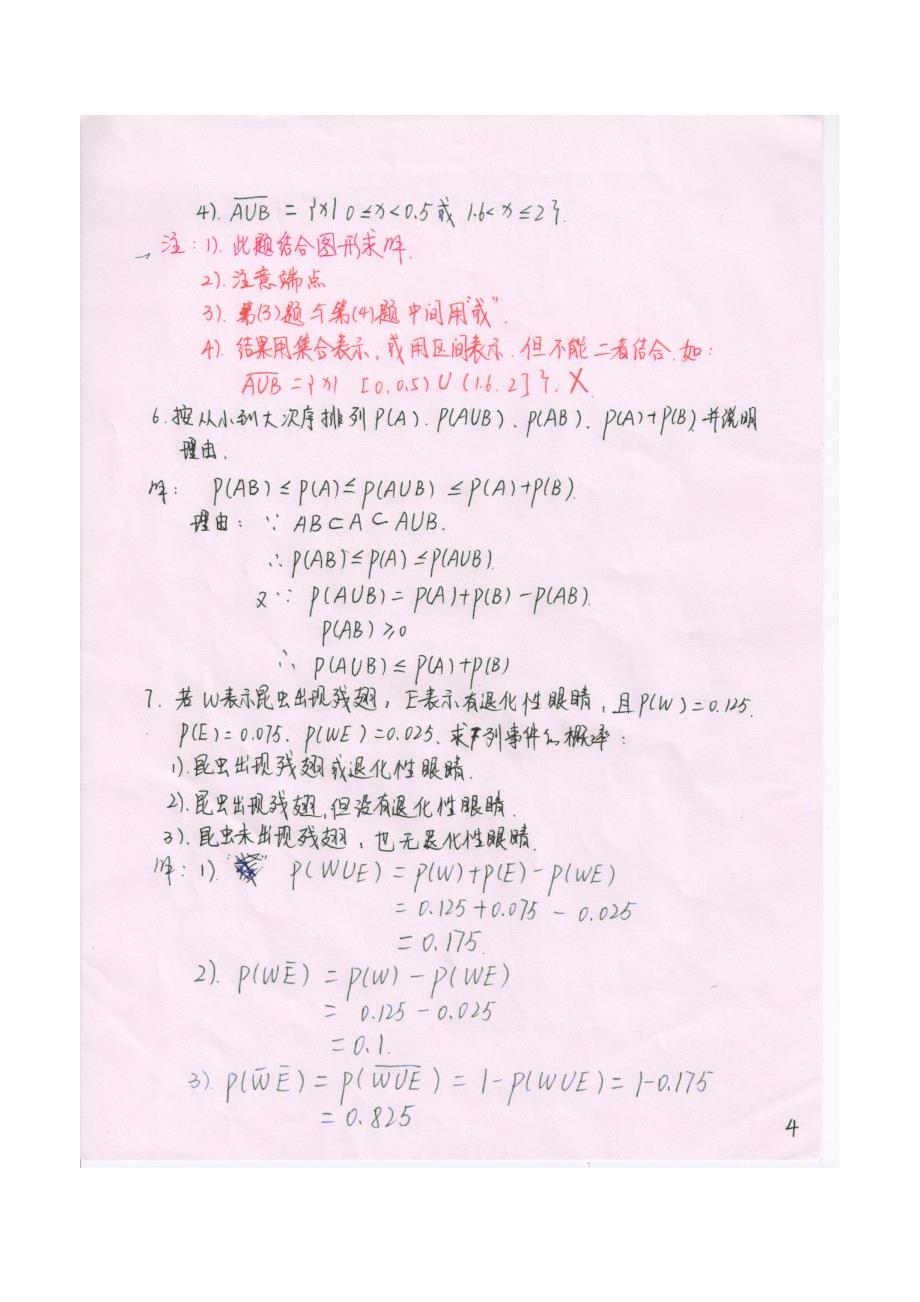 4). \overline{A∪B} = {x| 0≤x<0.5或 1.6<x≤2}.
注: 1). 此题结合图形求解.
2). 注意端点
3). 第(3)题与第(4)题中间用"或".
4). 结果用集合表示, 或用区间表示. 但不能二者结合. 如:
\overline{A∪B} = {x| [0, 0.5) ∪ (1.6, 2]}. ×
6. 按从小到大次序排列 P(A). P(A∪B)、P(AB)、P(A)+P(B), 并说明
理由.
解: P(AB) ≤ P(A) ≤ P(A∪B) ≤ P(A)+P(B).
理由: ∵ AB⊂A⊂A∪B.
∴ P(AB) ≤ P(A) ≤ P(A∪B).
又∵ P(A∪B) = P(A)+P(B)-P(AB).
P(AB) ≥ 0
∴ P(A∪B) ≤ P(A)+P(B)
7. 若W表示昆虫出现残翅, E表示有退化性眼睛, 且P(W)=0.125.
P(E)=0.075. P(WE)=0.025、求下列事件的概率:
1). 昆虫出现残翅或退化性眼睛.
2). 昆虫出现残翅, 但没有退化性眼睛.
3). 昆虫未出现残翅, 也无退化性眼睛.
解: 1). P(W∪E) = P(W)+P(E)-P(WE)
= 0.125+0.075-0.025
= 0.175.
2). P(W\bar{E}) = P(W)-P(WE)
= 0.125-0.025
= 0.1.
3). P(\bar{W}\bar{E}) = P(\overline{W∪E}) = 1-P(W∪E) = 1-0.175
= 0.825
4